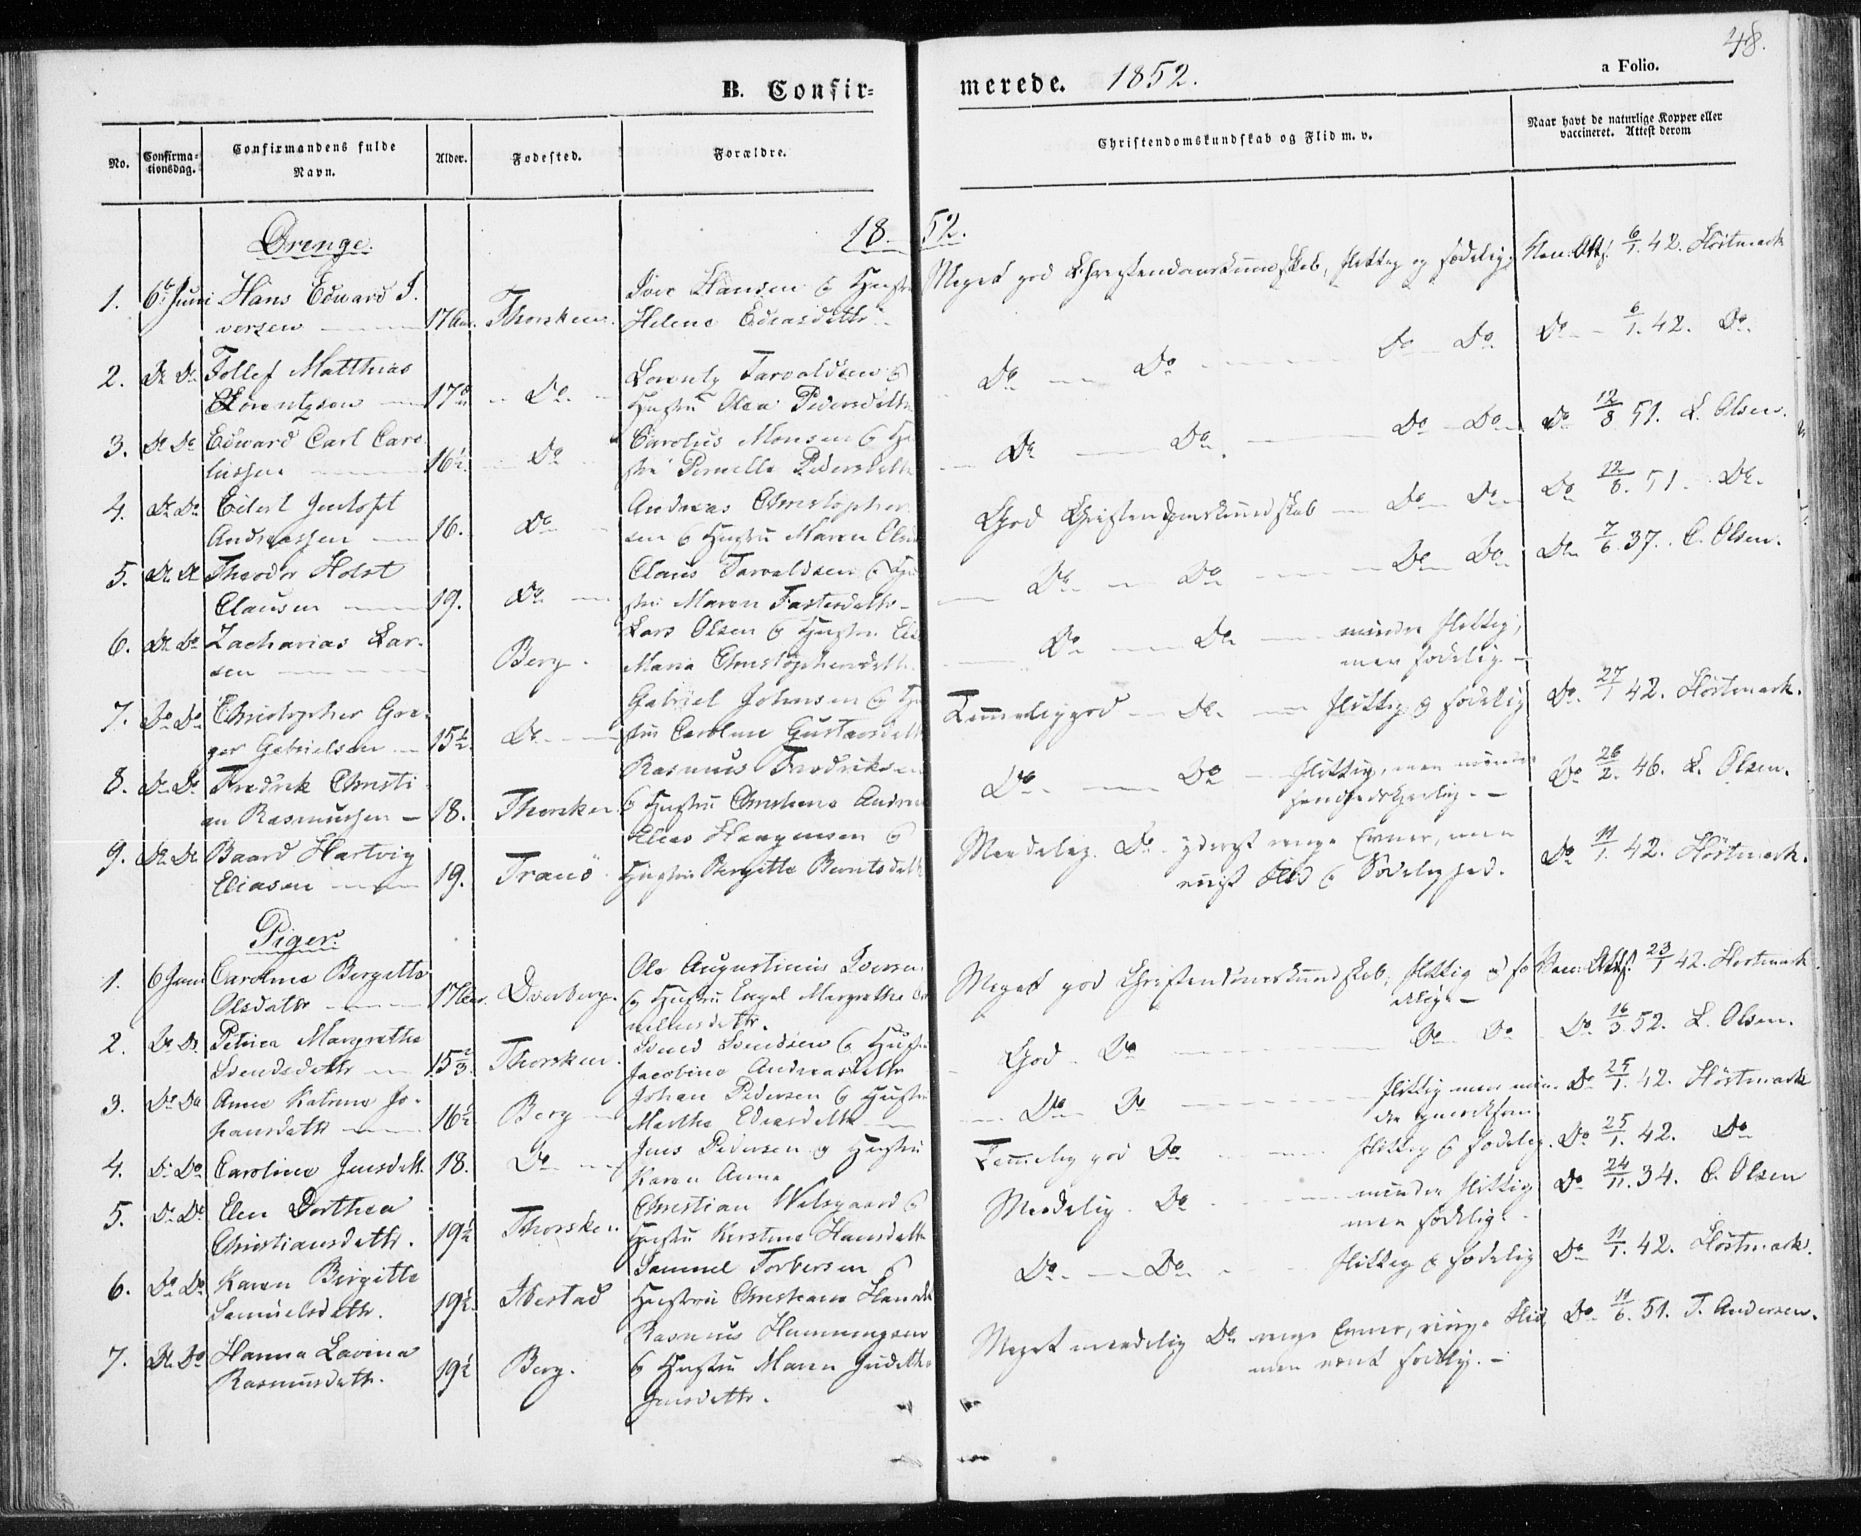 48.
B. Confirmerede. 1852.
a Folio.
No.
Confirma-
tionsdag.
Confirmandens fulde
Navn.
Alder.
Fødested.
Forældre.
Christendomskundskab og Flid m. v.
Naar havt de naturlige Kopper eller
vaccineret. Attest derom
Drenge.
1852.
1. 6te Juni Hans Edward I-
versen 17 Aar. Thorsken. Iver Hansen & Hustru
Helene Ediasdattr
Meget god Christendomskundskab, flittig og sædelig. Vac. Att. 6/1. 42. Höstmark
2. Do Do Tollef Matthias
Lorentzen 17 Do Lorentz Tarvaldsen &
Hustru Olea Pedersdattr
Do Do Do Do Do 6/1. 42. Do
3. Do Do Edward Carl Caro
lussen 16½ Do Carolus Monsen & Hu
stru Pernelle Pedersdattr
Do Do Do Do Do 12/8 51. L. Olsen.
4. Do Do Eilert Gentoft
Andreassen 16. Do Andreas Christopher
sen & Hustru Maren Olsd
God Christendomskundskab Do Do Do 12/8. 51. Do
5. Do Do Theodor Holst
Clausen 19. Do Claus Tarvaldsen & Hu
stru Maren Tastesdattr
Do Do Do Do Do 7/6. 37. C. Olsen.
6. Do Do Zacharias Lar-
sen Berg. Lars Olsen & Hustru
Maria Christophersdattr
Do Do mindre flittig,
men sædelig
7. Do Do Christopher Gre-
ger Gabrielsen 15½ Do Gabriel Johnsen & Hu
stru Caroline Gustavsdattr
Temmelig god Do flittig & sædelig Do 27/1 42. Höstmark.
8. Do Do Fredrik Christi
an Rasmussen 18. Thorsken Rasmus Fredriksen
& Hustru Christiane Andrea
Do Do flittig, men mindre
Do 26/2. 46. L. Olsen.
9. Do Do Baard Hartvig
Eliasen 19. Tranö. Elias Haagensen &
Hustru Bergitte Berntsdattr
Maadelig. Do yderst ringe Evner, men
Flid & Sædelighed. Do 11/1. 42. Höstmark.
Piger.
1. 6 Juni Caroline Bergitte
Olsdattr 17 Aar. Dverberg. Ole Augustinus Iversen
& Hustru Engel Margrethe Cor
neliusdattr.
Meget god Christendomskundskab, flittig & sæ
delig. Vac. Att. 23/1 42. Höstmark
2. Do Do Petrica Margrethe
Svendsdattr 15⅔ Thorsken. Svend Svendsen & Hustru
Jacobine Andreasdattr
God Do Do Do Do 16/3 52. L. Olsen.
3. Do Do Anne Katrine Jo-
hansdattr 16½ Berg Johan Pedersen & Hustru
Martha Ediasdattr
Do Do flittig men min-
dre Do 25/1. 42. Höstmark
4. Do Do Caroline Jensdatt. 18. Do Jens Pedersen & Hustru
Karen Anna
Temmelig god Do flittig & sædelig. Do 25/1. 42. Do
5. Do Do Elen Dorthea
Christiansdattr. 19½ Thorsken. Christian Walsgaard &
Hustru Kirstine Hansdattr
Maadelig. Do mindre flittig
men sædelig. Do 24/11. 34. C. Olsen
6. Do Do Karen Birgitte
Samuelsdattr. 19½ Ibestad Samuel Torbersen &
Hustru Christiane Hansdtr
Do Do flittig & sædelig Do 11/1. 42. Höstmark.
7. Do Do Hanna Lavina
Rasmusdattr. 19½ Berg. Rasmus Hemmingsen
& Hustru Maren Judithe
Jensdattr.
Meget maadelig Do ringe Evner, ringe Flid
men sædelig. Do 11/6. 51. T. Andersen.